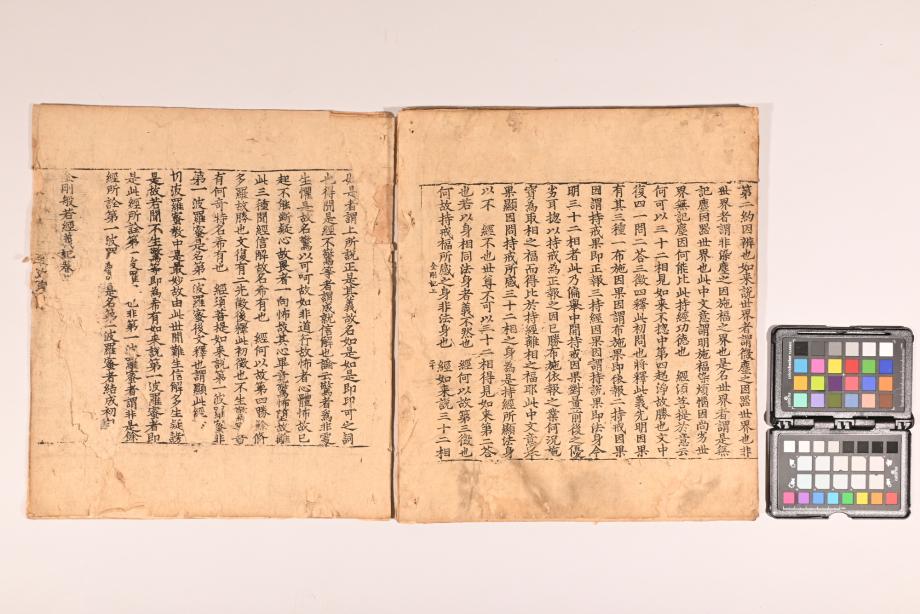 第二約因辨也如来説世界者謂微塵之因器世界也非
世界者謂非染塵之因施福之界也是名世界者謂是無
記塵因器世界也此中文意謂明施福染煩惱因尚劣世
界無記塵因何能比此持經功德也 經須菩提於意云
何可以三十二相見如来不揔中第四起勝故勝也文中
復四一問二答三徵四釋此初問也將釋此義先明因果
有其三種一布施因果因謂布施果即依報二持戒因果
因謂持戒果即正報三持經因果因謂持讀果即法身今
明三十二相者此乃偏舉中間持戒因果對重前後之優
劣耳揔以持戒為正報之因已勝布施依報之業何況施
寶為取相之福而得比於持經離相之福耶此中文意
果顯因問持戒所感三十二相之身為是持經所顯法身
以不 經不也世尊不可以三十二相得見如来第二答
也若以身相同法身者義不然也 經何以故第三徵也
何故持戒福所感之身非法身也 經如来説三十二相
金剛記上
如是者謂上所説正是其義故名如是如是即印可之詞
也得聞是經不驚等者謂成就信解也論云驚者為非處
生懼是故名驚以可呵故如非道行故怖者心體怖故已
起不能斷疑心故畏者一向怖故其心畢竟驚怖墮故離
此三種聞經信解故名希有也 經何以故第四勝餘脩
多羅故勝也文復有二先徵後釋此初徵也不生驚等
有何奇特名希有也 經須菩提如来説第一波羅蜜非
第一波羅蜜是名第一波羅蜜後文釋也謂顯此經
切波羅蜜教中是最妙故由此世間難生信解多生疑謗
是故若聞不生驚等即為希有如来説第一波羅蜜者即
是此經所詮第一波羅 也非第一波羅蜜者謂非是餘
經所詮第一波羅 是名第一波羅蜜者結成初
金剛般若經義記卷